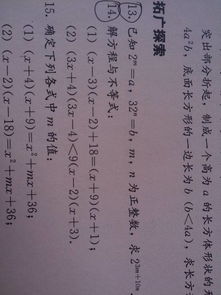 突出部分折起,制成一个高为a的长方体形状的
4a²b,底面长方形的一边长为b(b<4a),求长方
拓广探索
13. 已知2ᵐ=a,32ⁿ=b,m,n为正整数,求2³ᵐ⁺¹⁰ⁿ
14. 解方程与不等式:
(1) (x-3)(x-2)+18=(x+9)(x+1);
(2) (3x+4)(3x-4)<9(x-2)(x+3).
15. 确定下列各式中m的值:
(1) (x+4)(x+9)=x²+mx+36;
(2) (x-2)(x-18)=x²+mx+36;